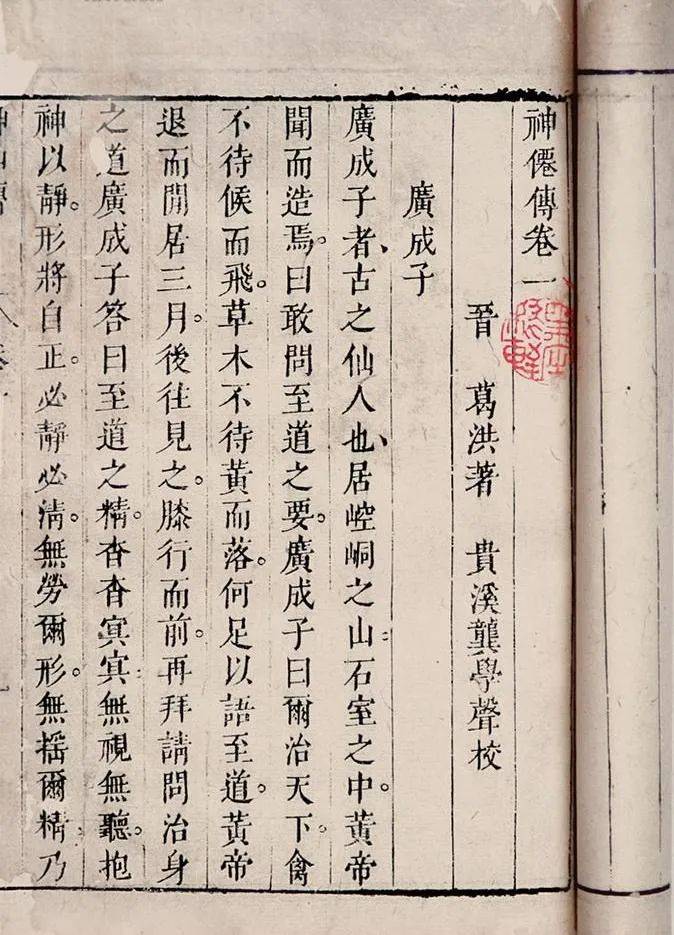 神僊傳卷一
晉 葛洪著 貴溪龔學聲校
廣成子
廣成子者、古之仙人也、居崆峒之山石室之中。黃帝
聞而造焉。曰敢問至道之要。廣成子曰爾治天下。禽
不待候而飛。草木不待黃而落。何足以語至道。黃帝
退而閒居三月。後往見之。膝行而前。再拜請問治身
之道廣成子答曰至道之精。杳杳㝠㝠無視無聽。抱
神以靜。形將自正。必靜必淸。無勞爾形。無揺爾精乃